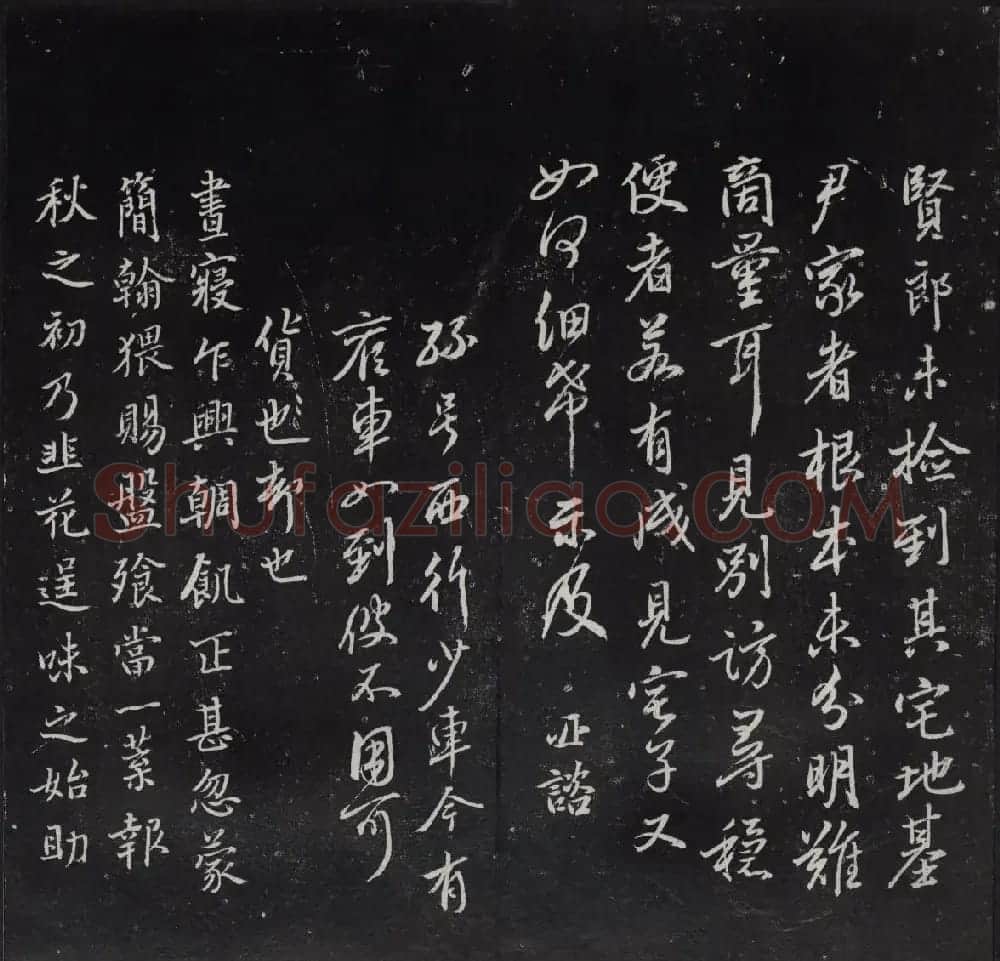 賢郎未檢到其宅地基
尹家者根本未分明難
商量耳見別訪尋穩
便者若有成見宅子又
如何細希示及諮
孫号西行少車今有
車如到彼不用可
貨也却也
晝寢乍興朝飢正甚忽蒙
簡翰猥賜盤飧當一葉報
秋之初乃韭花逞味之始助
Shufaziliao.COM